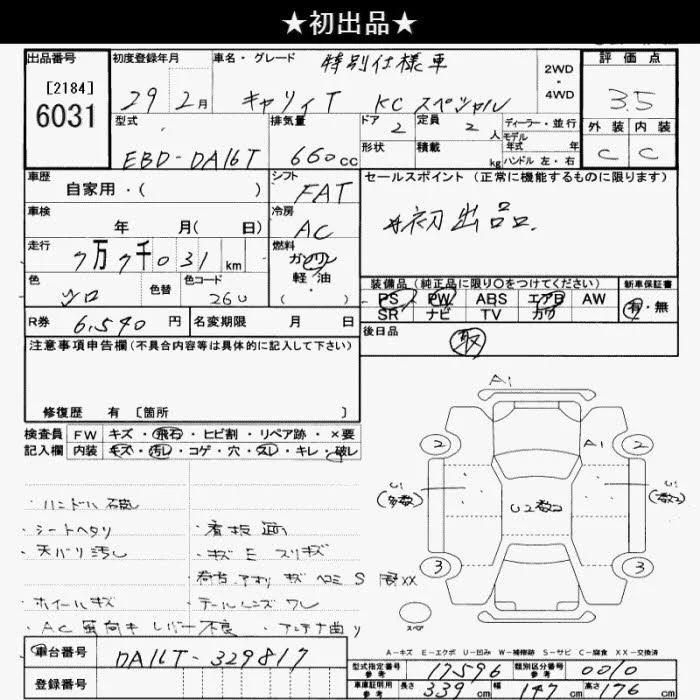 ★初出品★
出品番号
[2184]
6031
初度登録年月
29年2月
車名・グレード
特別仕様車
キャリイT KCスペシャル
2WD
・
4WD
評価点
3.5
外装 内装
C C
型式
EBD-DA16T
排気量
660cc
ドア
2
定員
2人
ディーラー・並行
モデル
年式 年
ハンドル 左・右
形状
積載
kg
車歴
自家用・( )
シフト
FAT
セールスポイント(正常に機能するものに限ります)
★初出品.
車検
年 月( 日)
冷房
AC
走行
7万7千031km
燃料
ガソリン
軽・油
( )
色
シロ
色替
色コード
26U
装備品(純正品に限り○をつけてください)
PS PW ABS エアB AW
SR ナビ TV カワ
新車保証書
有・無
R券 6,540円
名変期限 月 日
後日品
取
注意事項申告欄(不具合内容等は具体的に記入して下さい)
修復歴 有 [箇所 ]
検査員
記入欄
FW キズ・飛石・ヒビ割・リペア跡・×要
内装 キズ・汚レ・コゲ・穴・スレ・キレ・破レ
・ハンドル破レ
・シートヘタリ
・天バリ汚レ
・ホイールキズ
・AC風向キレバー不良
・看板跡
・キズ E スリキズ
・テールレンズワレ
・アンテナ曲り
A1
A1
2
2
U1
(多数)
U2
U1
3
3
スペア
A-キズ E-エクボ U-凹み W-補修跡 S-サビ C-腐食 XX-交換済
車台番号
DA16T-329817
登録番号
型式指定番号
参考
17596
類別区分番号
参考
0010
車庫証明用
参考
長さ 339cm
幅 147cm
高さ 176cm